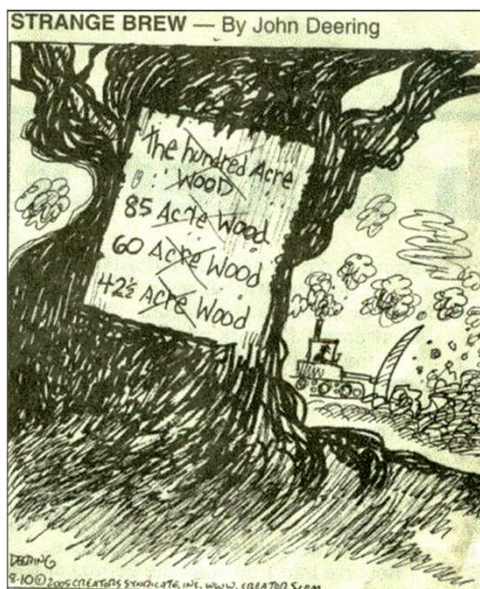 STRANGE BREW — By John Deering
The hundred Acre
WOOD
85 Acre Wood
60 Acre Wood
42½ Acre Wood
DEERING
8-10 © 2005 CREATORS SYNDICATE, INC. WWW.CREATORS.COM